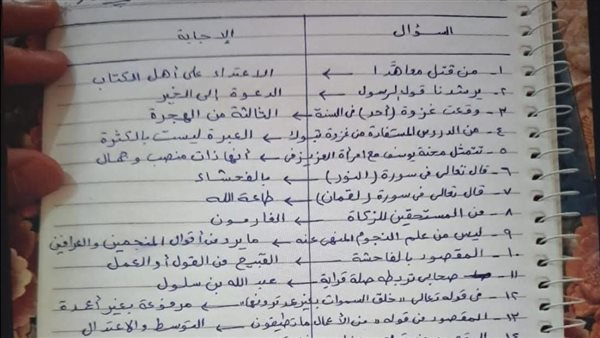 السؤال الإجابة
١- من قتل معاهدًا ← الاعتداء على أهل الكتاب
٢- يرشدنا قول الرسول ← الدعوة إلى الخير
٣- وقعت غزوة (أحد) فى السنة ← الثالثة من الهجرة
٤- من الدروس المستفادة من غزوة تبوك ← العبرة ليست بالكثرة
٥- تتمثل محنة يوسف مع امرأة العزيز فى ← أنها ذات منصب وجمال
٦- قال تعالى فى سورة (النور) ← بالفحشاء
٧- قال تعالى فى سورة (لقمان) ← طاعة الله
٨- من المستحقين للزكاة ← الغارمون
٩- ليس من علم النجوم المنهى عنه ← ما يرد من أقوال المنجمين والعرافين
١٠- المقصود بالفاحشة ← القبيح من القول أو العمل
١١- صحابى تربطه صلة قرابة ← عبد الله بن سلول
١٢- فى قوله تعالى "خلق السموات بغير عمد ترونها" ← مرفوعة بغير أعمدة
١٣- المقصود من قوله "من الأعمال ما تطيقون ← التوسط والاعتدال